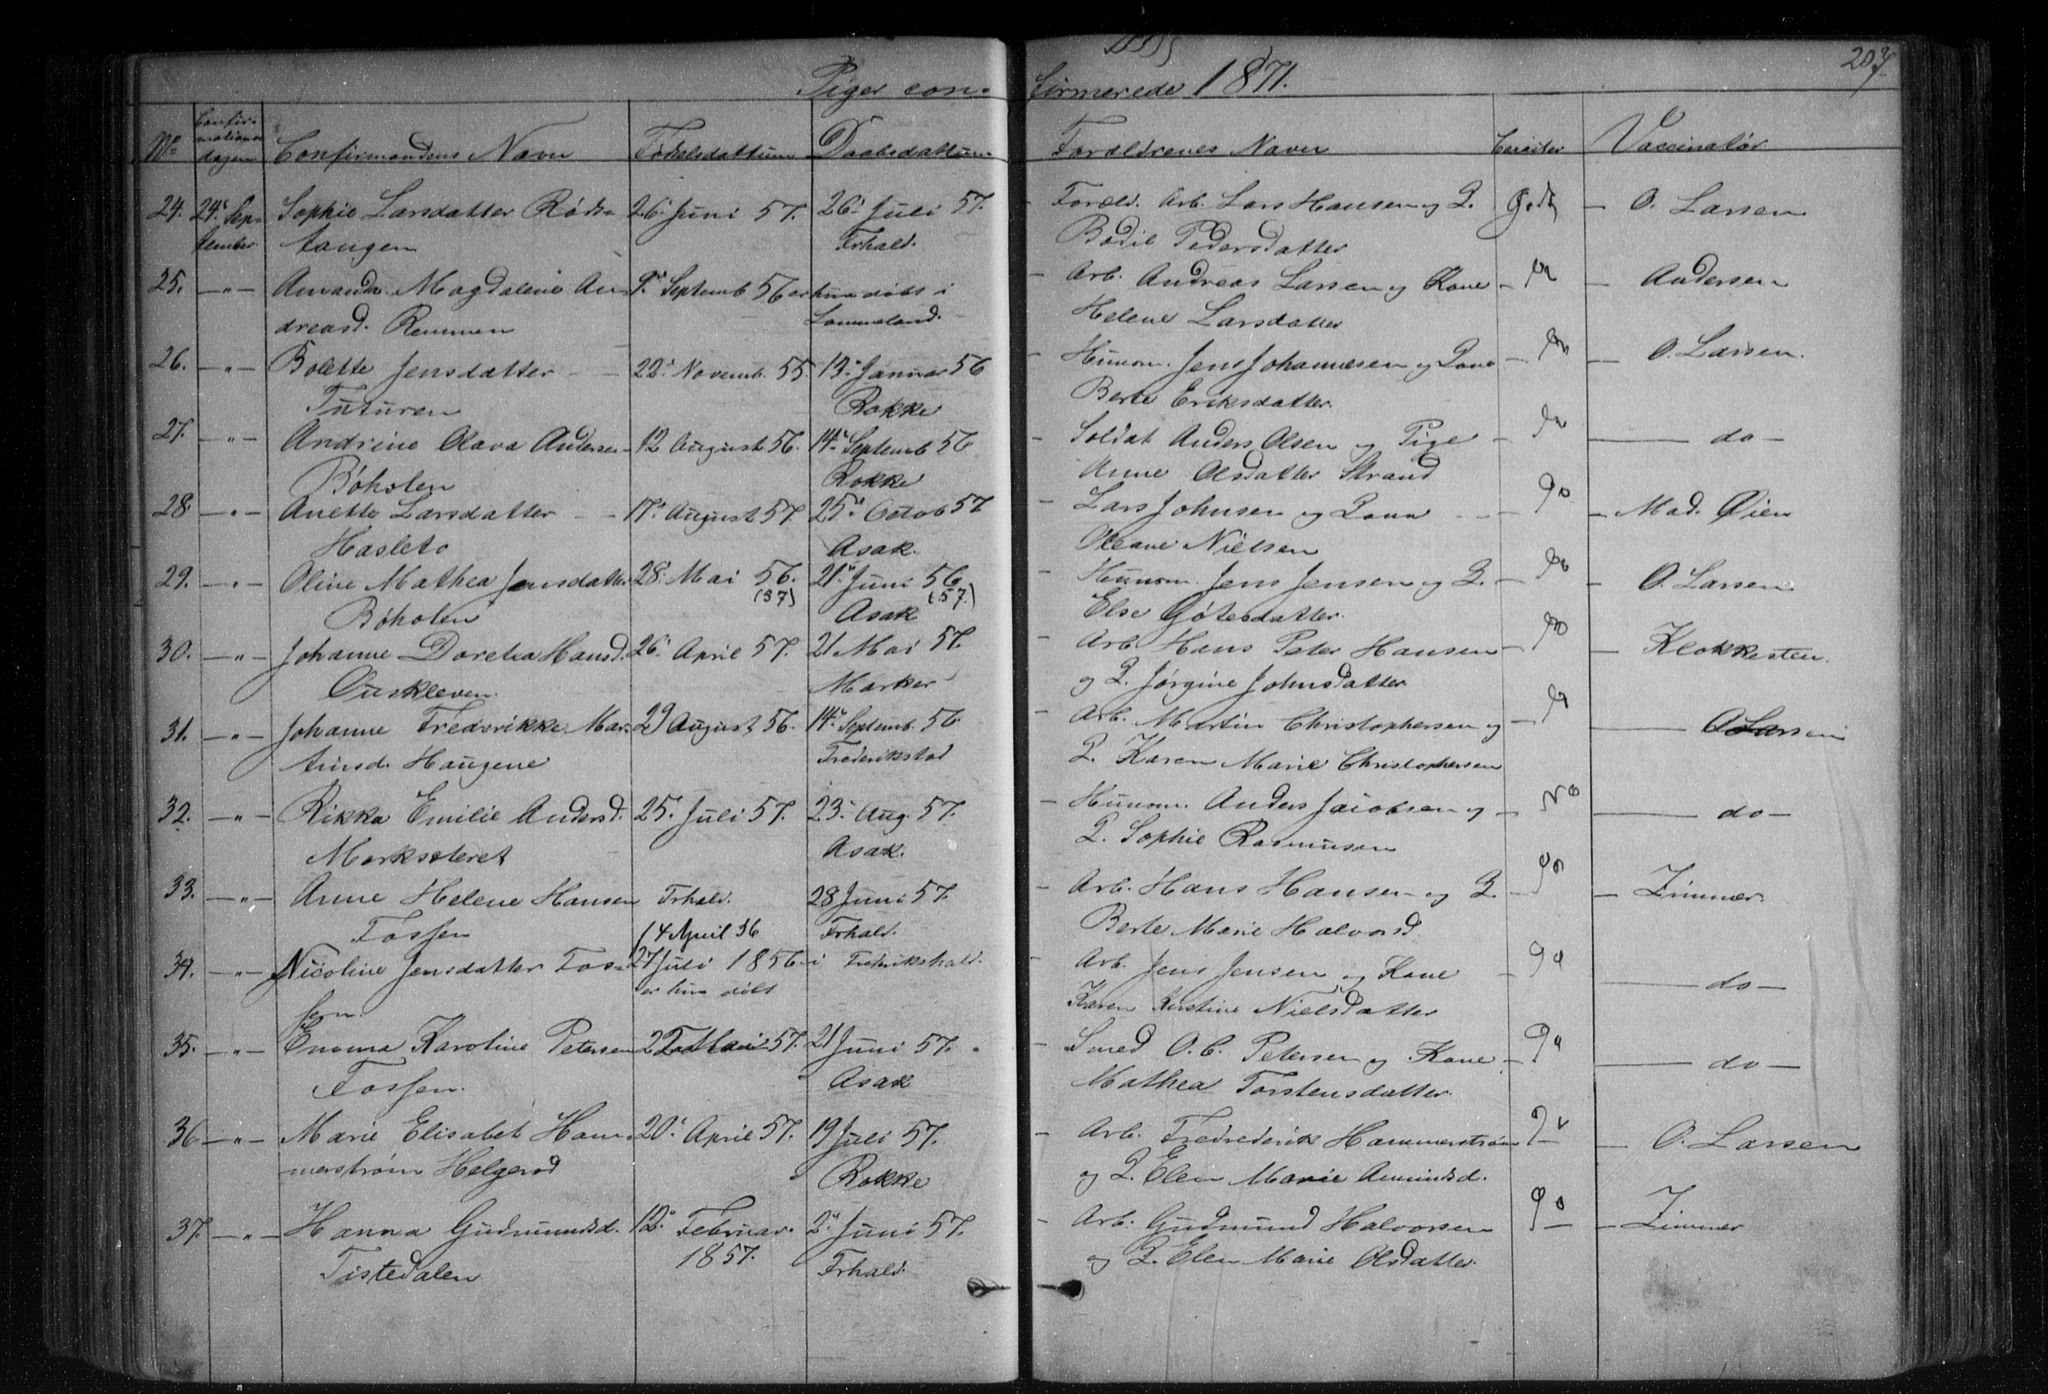 Piger con- firmerede 1871.
207
No Confirmationsdagen Confirmandens Navn Fødselsdattum Daabsdattum Forældrenes Navn Vaccinatør
24. 24' Sep- Sophie Larsdatter Røds- 26' Juni 57. 26' Juli 57. - Foræld. Arb. Lars Hansen og Q. Godt - O. Larsen
tember tangen Frhald. Bodil Pedersdatter
25. -"- Amanda Magdalene An- 9' Septemb 56 er hun døbt i - Arb. Andreas Larsen og Kone - Andersen
dreasd. Remmen Helene Larsdatter
26. -"- Bolette Jensdatter 22' Novemb. 55. 13' Januar 56 - Huusm. Jens Johannesen og - O. Larsen.
Tuturen Rokke Berte Eriksdatter.
27. -"- Andrine Olava Andersen 12 August 56. 14' Septemb 56 - Soldat Anders Olsen og Pige - do -
Bøholen Rokke Anne Olsdatter Strand
28. -"- Anette Larsdatter 17' August 57. 25' Octob 57 - Lars Johnsen og - Mad. Øien
Hasleto Asak. Oleane Nielsen
29. -"- Oline Mathea Jensdatter 28' Mai 56. 21' Juni 56 - Huusm. Jens Jensen og Q. - O. Larsen
Bøholen (57) Asak (57) Else Götesdatter.
30. -"- Johanne Dorthea Hansd. 26' April 57. 21 Mai 57. - Arb. Hans Peter Hansen - Klokkesten.
Ouskleven. Marker og Q. Jørgine Johnsdatter
31. -"- Johanne Fredrikke Mar- 29 August 56. 14' Septemb. 56 - Arb. Martin Christophersen og - O Larsen
tinsd. Haugene Frederikstad Q. Karen Marie Christophersen
32. -"- Rikka Emilie Andersd. 25' Juli 57. 23' Aug. 57. - Huusm. Anders Jacobsen og - do -
Marksteret Asak. Q. Sophie Rasmusen
33. -"- Anne Helene Hansen Frhald. 28 Juni 57. - Arb. Hans Hansen og Q. - Zimmer
Fossen 14 April 56 Frhald. Berte Marie Halvorsd.
34. -"- Nicoline Jensdatter Fos- 27' Juli 1856. i Fredrikshald. - Arb. Jens Jensen og Kone - do -
sen. er hun døbt Karen Kirstine Nielsdatter
35. -"- Emma Karoline Petersen 22 Mai 57. 21 Juni 57. - Smed O. C. Petersen og Kone - do -
Fossen. Asak Mathea Torstensdatter.
36 -"- Marie Elisabet Ham- 20' April 57. 19 Juli 57. - Arb. Fredrederik Hammerstrøm - O. Larsen
merstrøm Helgerød Rokke og Q. Elen Marie Amundsd.
37. -"- Hanna Gudmundsd. 12' Februar. 2' Juni 57. - Arb. Gudmund Halvorsen - Zimmer
Tistedalen 1857. Frhald. og Q. Elen Marie Olsdatter.